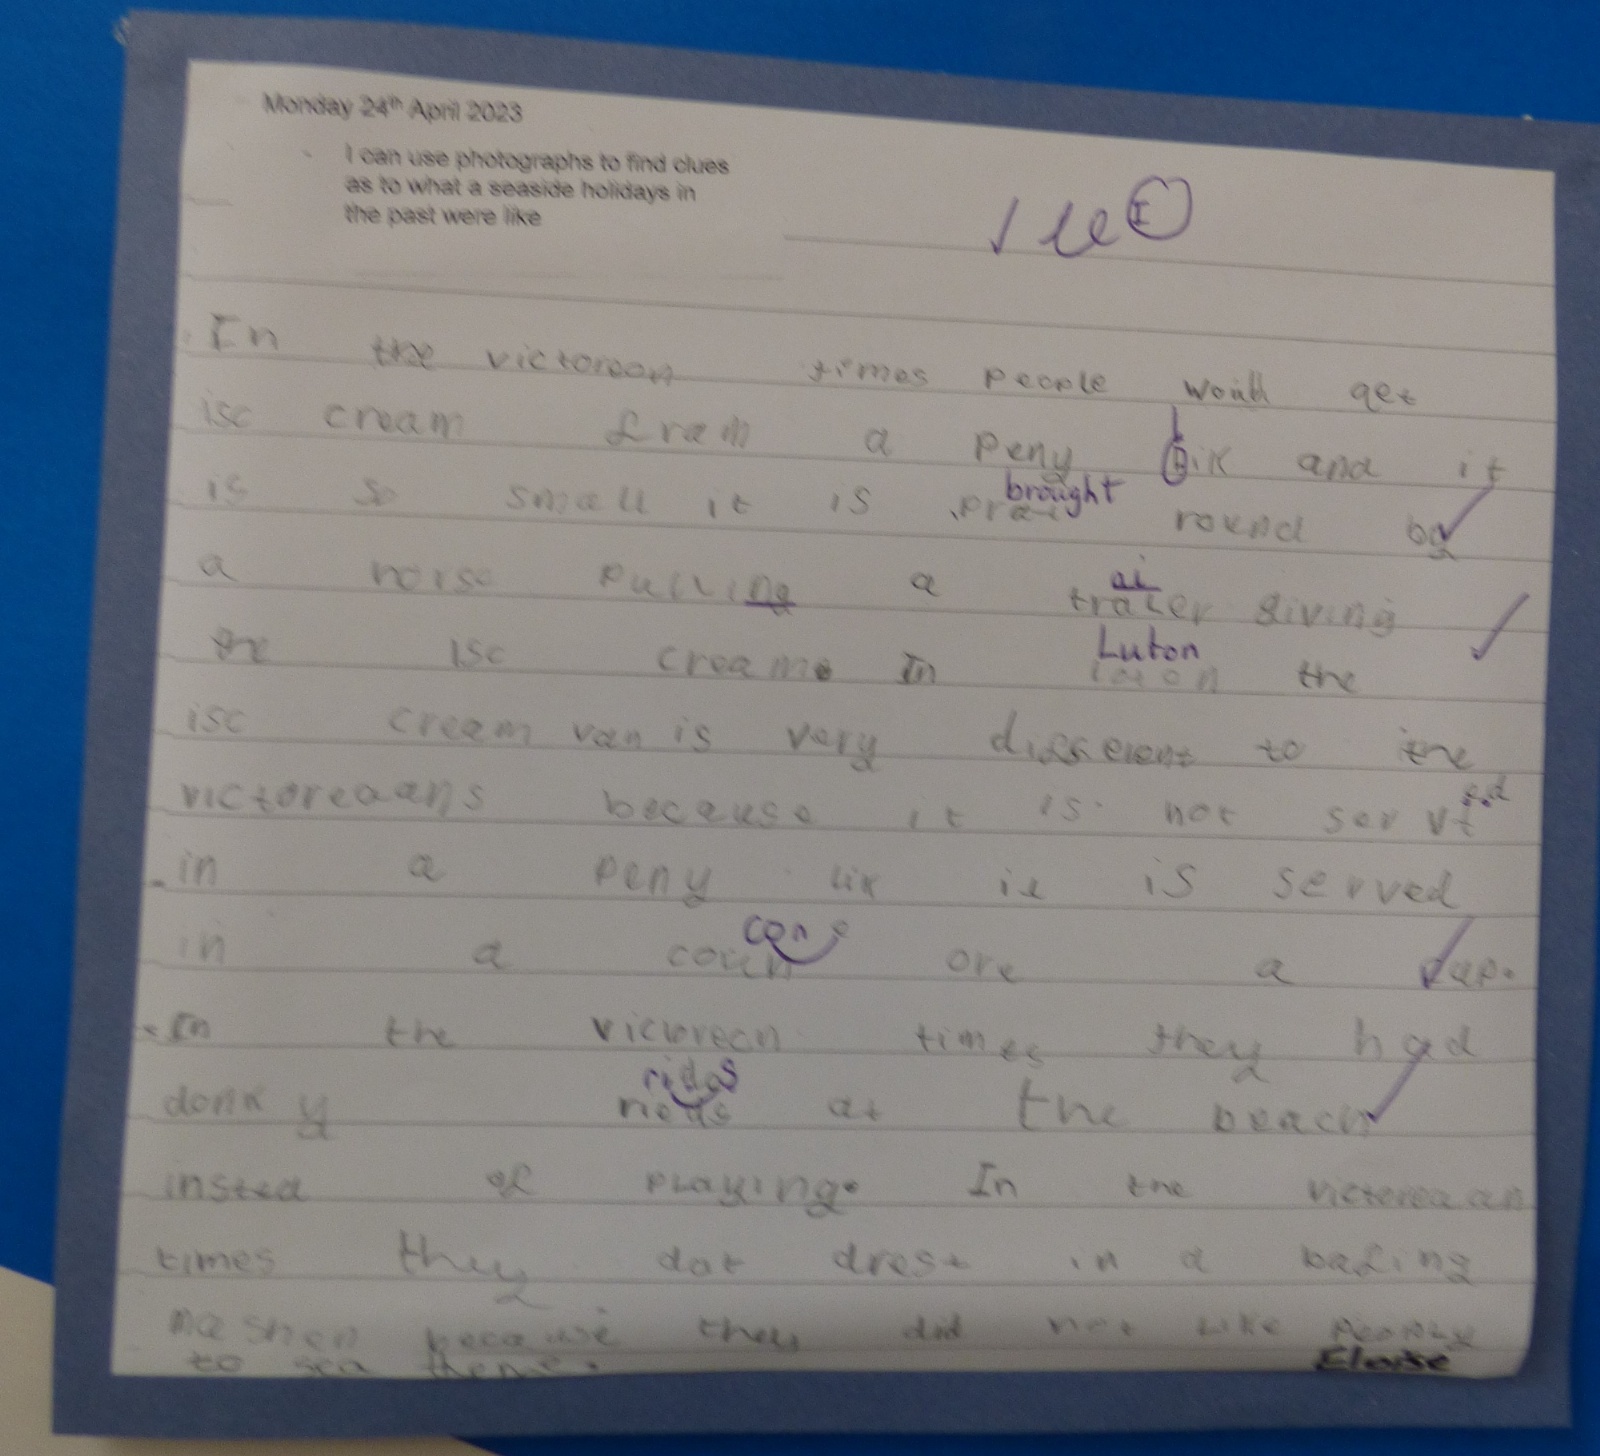 Monday 24th April 2023
I can use photographs to find clues
as to what a seaside holidays in
the past were like
In the victorean times people would get
isc cream fram a peny lik and it
brought
is so small it is round by
a horse pulling a
ai
traler giving
the isc creams. In
Luton
the
isc cream van is very different to the
ed
victoreaans because it is not servt
in a peny lik it is served
cone
in a coun ore a cup.
In the victorean times they had
rides
donky at the beach
insted of playing. In the victereaan
times they dot drest in a bafing
mashen because they did not like people
to sea them.
Eloise